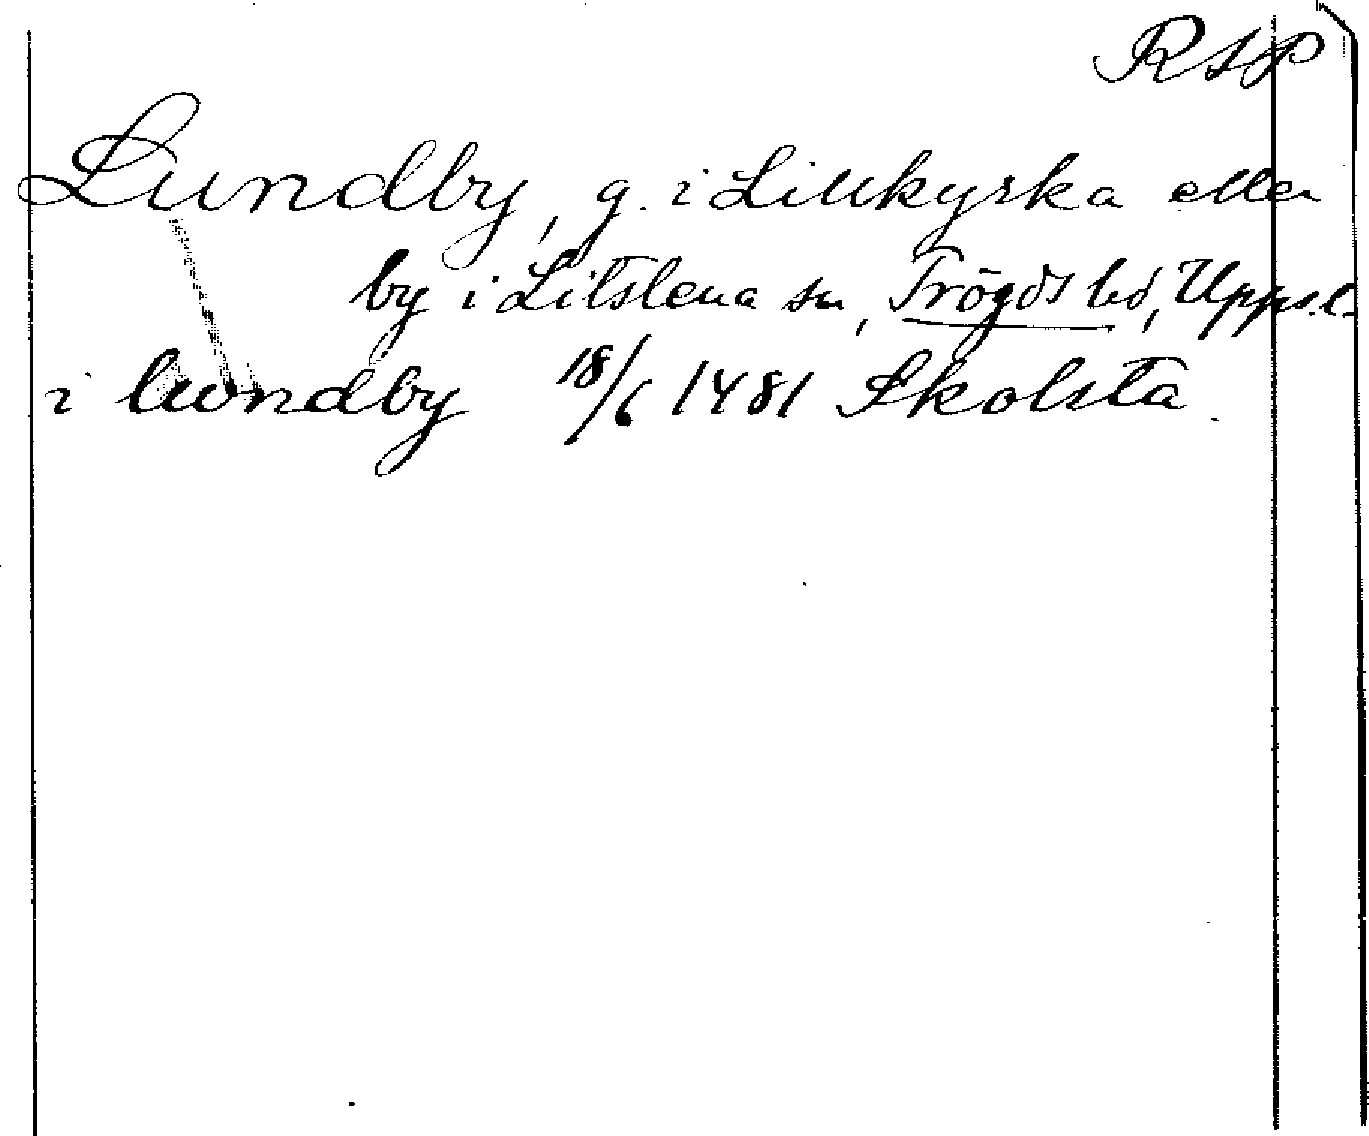 RSP
Lundby, g. i Lillkyrka eller
by i Litslena sn, Trögds hd, Upps.l.
i lundby 18/6 1481 Skolsta